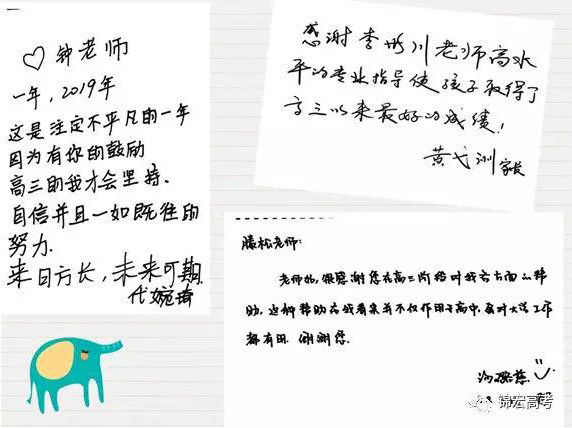 ♡ 钟老师
一年,2019年
这是注定不平凡的一年
因为有你的鼓励
高三的我才会坚持.
自信并且一如既往的
努力.
来日方长,未来可期.
代婉琦
感谢李彬川老师高水
平的专业指导使孩子取得了
高三以来最好的成绩!
黄弋洲家长
滕松老师:
老师好,很感谢您在高三阶段对我各方面的帮
助,这种帮助在我看来并不仅作用于高中,应对大学工作
都有用.谢谢您.
锦宏高考